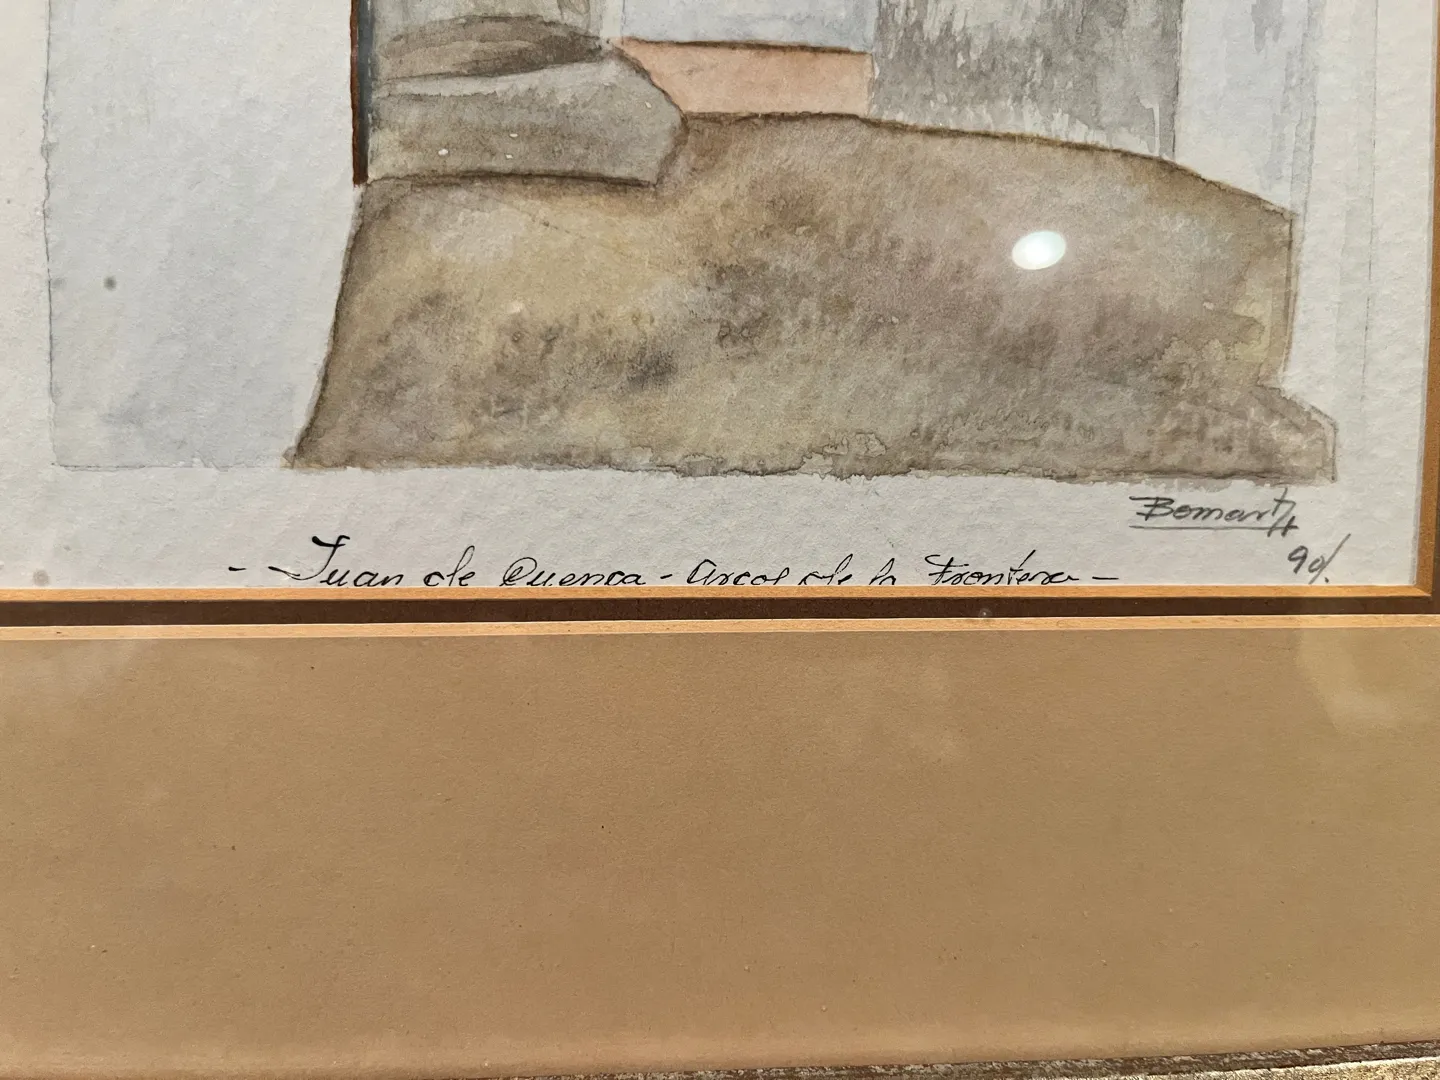 Bomart
90/.
- Juan de Cuenca - Arcos de la Frontera -